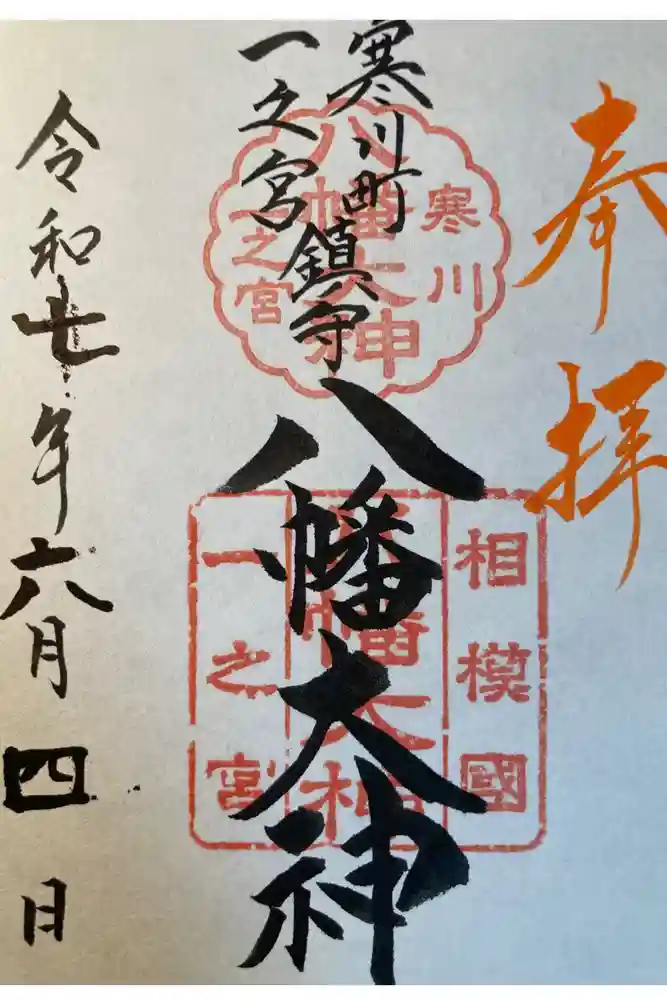 奉拝
寒川町
一之宮
鎮守
八幡大神
寒川
八幡大神
一之宮
相模國
八幡大神
一之宮
令和七年六月四日